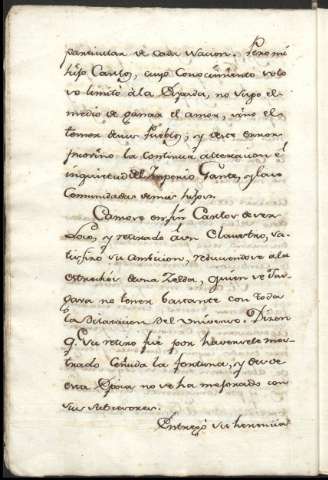 particular de cada Nacion. Pero mi
hijo Carlos, cuyo Conocimiento solo
se limitó á la Espada, no supo el
medio de ganar el amor, sino el
temor de sus Pueblos; y de este error
provino la continua alteracion é
inquietud del Imperio Gante, y las
Comunidades demas hijos.
Cansose en fin Carlos de ser
Loco, y retirado á un Claustro, sa-
tisfizo su ambicion, reduciendose a la
estrechés de una Zelda, quien se juz-
gara no tener bastante con toda
la Dilatacion del Universo. Dizen
q.e su retiro fué por haversele mos-
trado Ceñuda la fortuna, y desde
esta Epoca no se ha mejorado con
sus sucesores.
Entregó su herencia